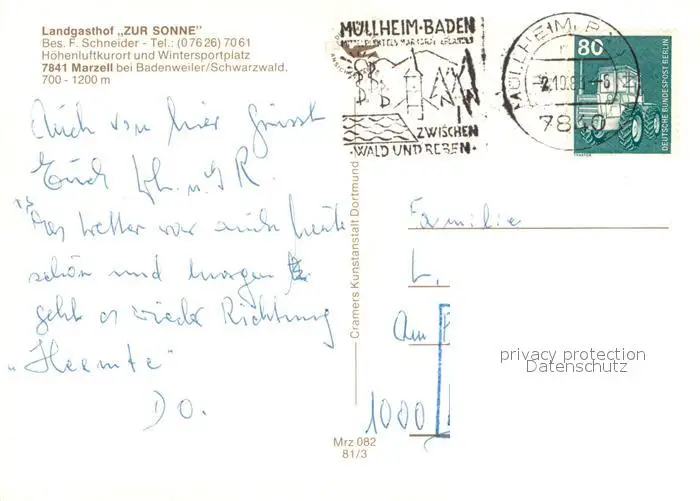 Landgasthof „ZUR SONNE"
Bes. F. Schneider - Tel.: (0 76 26) 70 61
Höhenluftkurort und Wintersportplatz
7841 Marzell bei Badenweiler/Schwarzwald.
700 - 1200 m
MÜLLHEIM·BADEN
ZWISCHEN
·WALD UND REBEN·
MÜLLHEIM,
7840
80
DEUTSCHE BUNDESPOST BERLIN
TRAKTOR
Auch von hier grüsst
Euch
Das Wetter war auch heute
schön und morgen
geht es wieder Richtung
„Heemte"
Do.
Cramers Kunstanstalt Dortmund
Familie
L.
Am
1000
privacy protection
Datenschutz
Mrz 082
81/3